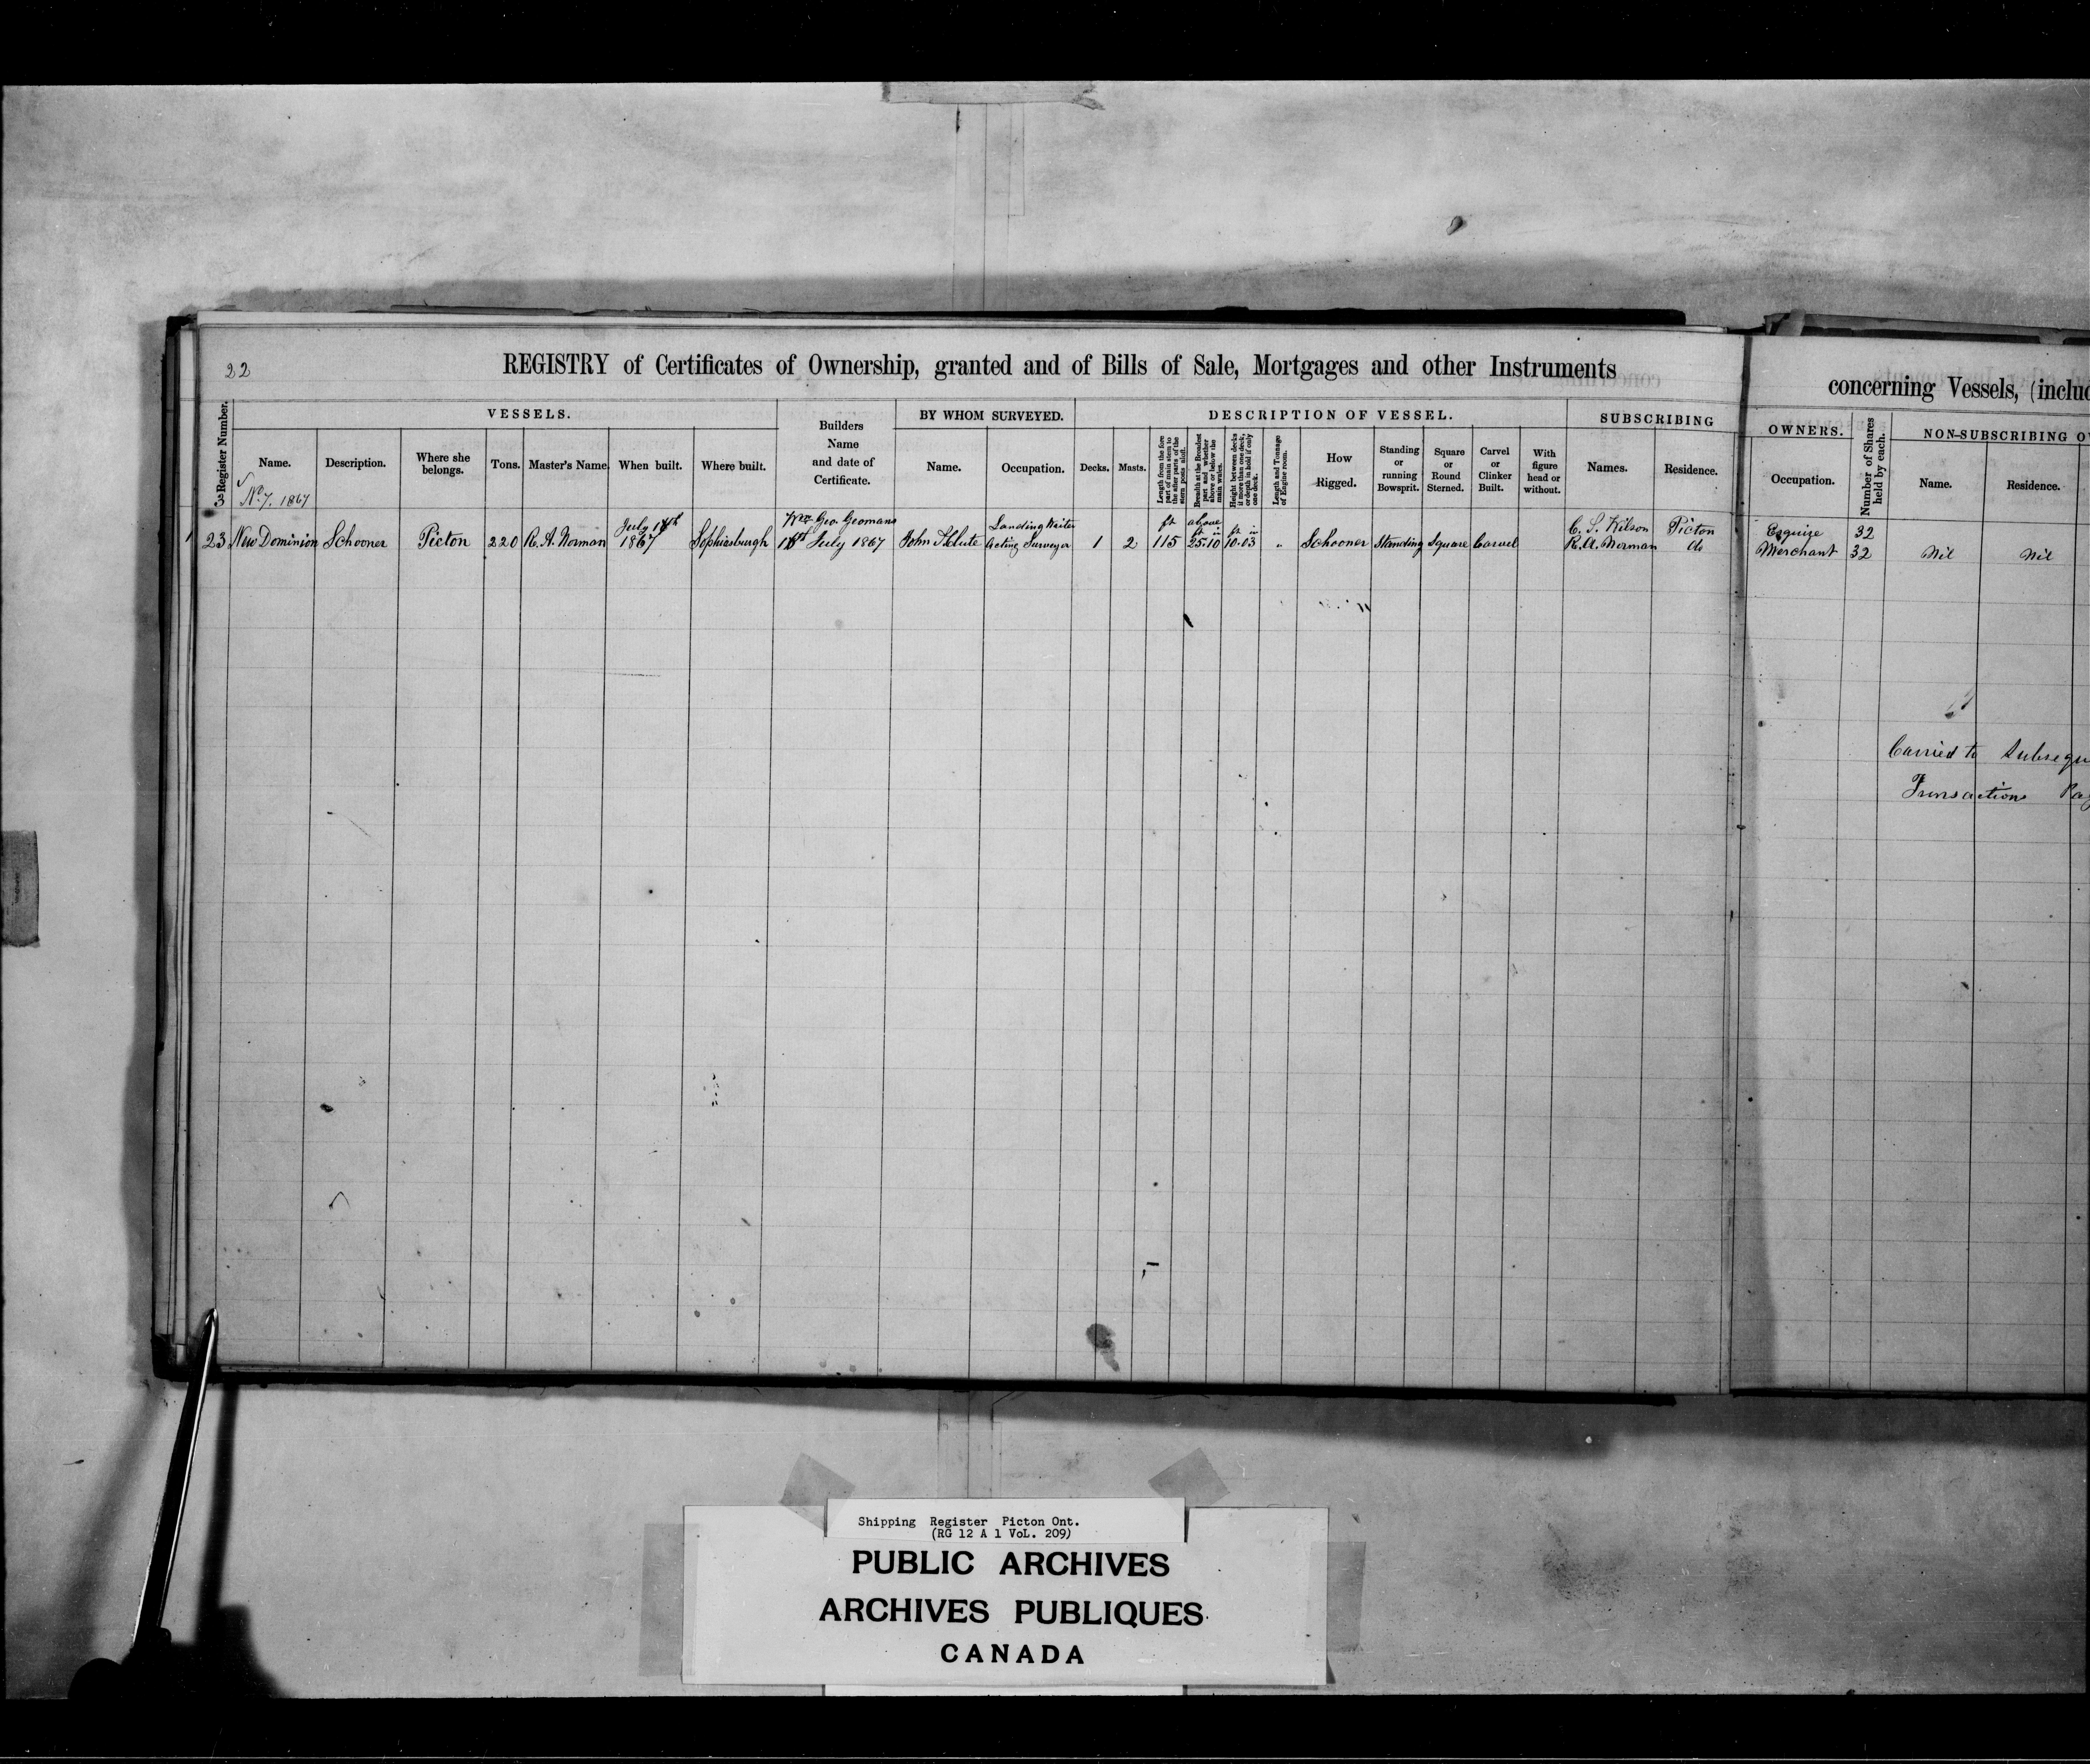 22
REGISTRY of Certificates of Ownership, granted and of Bills of Sale, Mortgages and other Instruments
concerning Vessels, (inclu
Register Number.
VESSELS.
Name.
Description.
Where she belongs.
Tons.
Master's Name
When built.
Where built.
Builders
Name
and date of
Certificate.
BY WHOM SURVEYED.
Name.
Occupation.
DESCRIPTION OF VESSEL.
Decks.
Masts.
Length from the fore part of main stem to the after part of the stern post aloft.
Breadth at the Broadest part and whether above or below the main wales.
Height between decks if more than one deck, or depth in hold if only one deck.
Length and Tonnage of Engine room.
How Rigged.
Standing or running Bowsprit.
Square or Round Sterned.
Carvel or Clinker Built.
With figure head or without.
SUBSCRIBING
Names.
Residence.
OWNERS.
Occupation.
Number of Shares held by each.
NON-SUBSCRIBING O
Name.
Residence.
No. 7. 1867
23 New Dominion Schooner Picton 220 R. A. Norman
July
1867
Sophiasburgh
Geo.
July 1867
John
Landing Waiter
Acting Surveyor
1 2
ft
115
above
ft in
25.10
ft in
10.03
"
Schooner Standing Square Carvel
C. S. Wilson Picton
R. A. Norman do
Esquire 32
Merchant 32 Nil Nil
Carried to Subsequ
Transactions Pag
Shipping Register Picton Ont.
(RG 12 A 1 VoL. 209)
PUBLIC ARCHIVES
ARCHIVES PUBLIQUES
CANADA